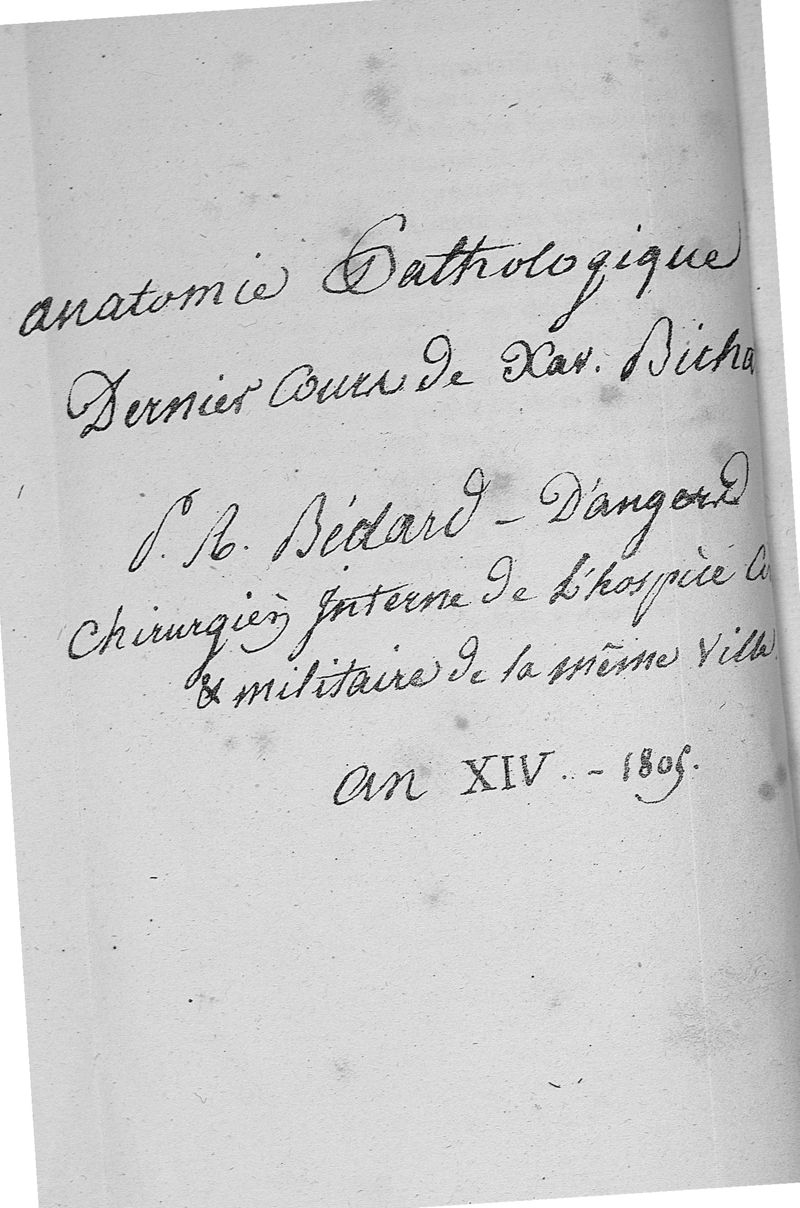 anatomie Pathologique
Dernier Cours de Xav. Bicha
P. A. Béclard - D'angers
Chirurgien interne de L'hospice
& militaire de la même ville.
an XIV. - 1805.